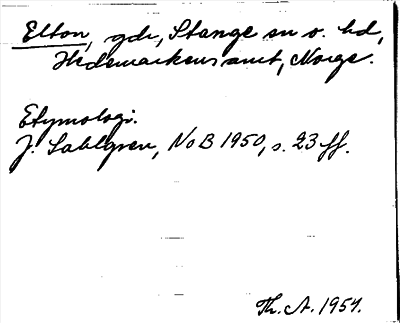 Elton, gdr, Stange sn o. hd,
Hedemarkens amt, Norge.
Etymologi.
J. Sahlgren, NoB 1950, s. 23 ff.
Th. A. 1954.